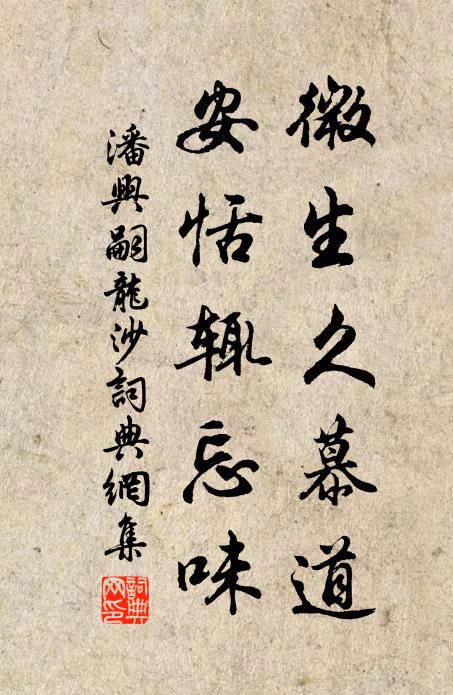 微生久慕道
安恬辄忘味
潘興嗣龍沙詞典網集
詞典网印